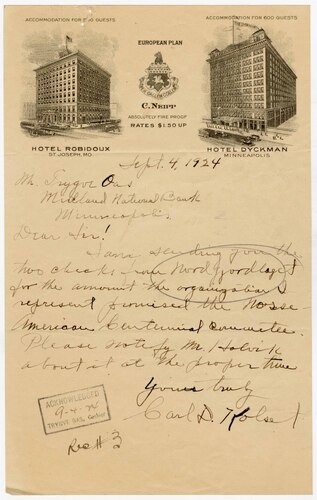 ACCOMMODATION FOR 200 GUESTS
EUROPEAN PLAN
ACCOMMODATION FOR 600 GUESTS
C. NEUP
ABSOLUTELY FIRE PROOF
RATES $1.50 UP
HOTEL ROBIDOUX
ST. JOSEPH, MO.
HOTEL DYCKMAN
MINNEAPOLIS
Sept. 4, 1924
Mr. Trygve Oas
Midland National Bank
Minneapolis.
Dear Sir!
I am sending you the
two checks from Nordfjordlaget
for the amount the organization
represent promised the Norse-
American Centennial Committee.
Please notify Mr. Holvik
about it at the proper time
Yours truly
Carl D. Kolset
ACKNOWLEDGED
9-4-24
TRYGVE OAS, Cashier
Rec # 3